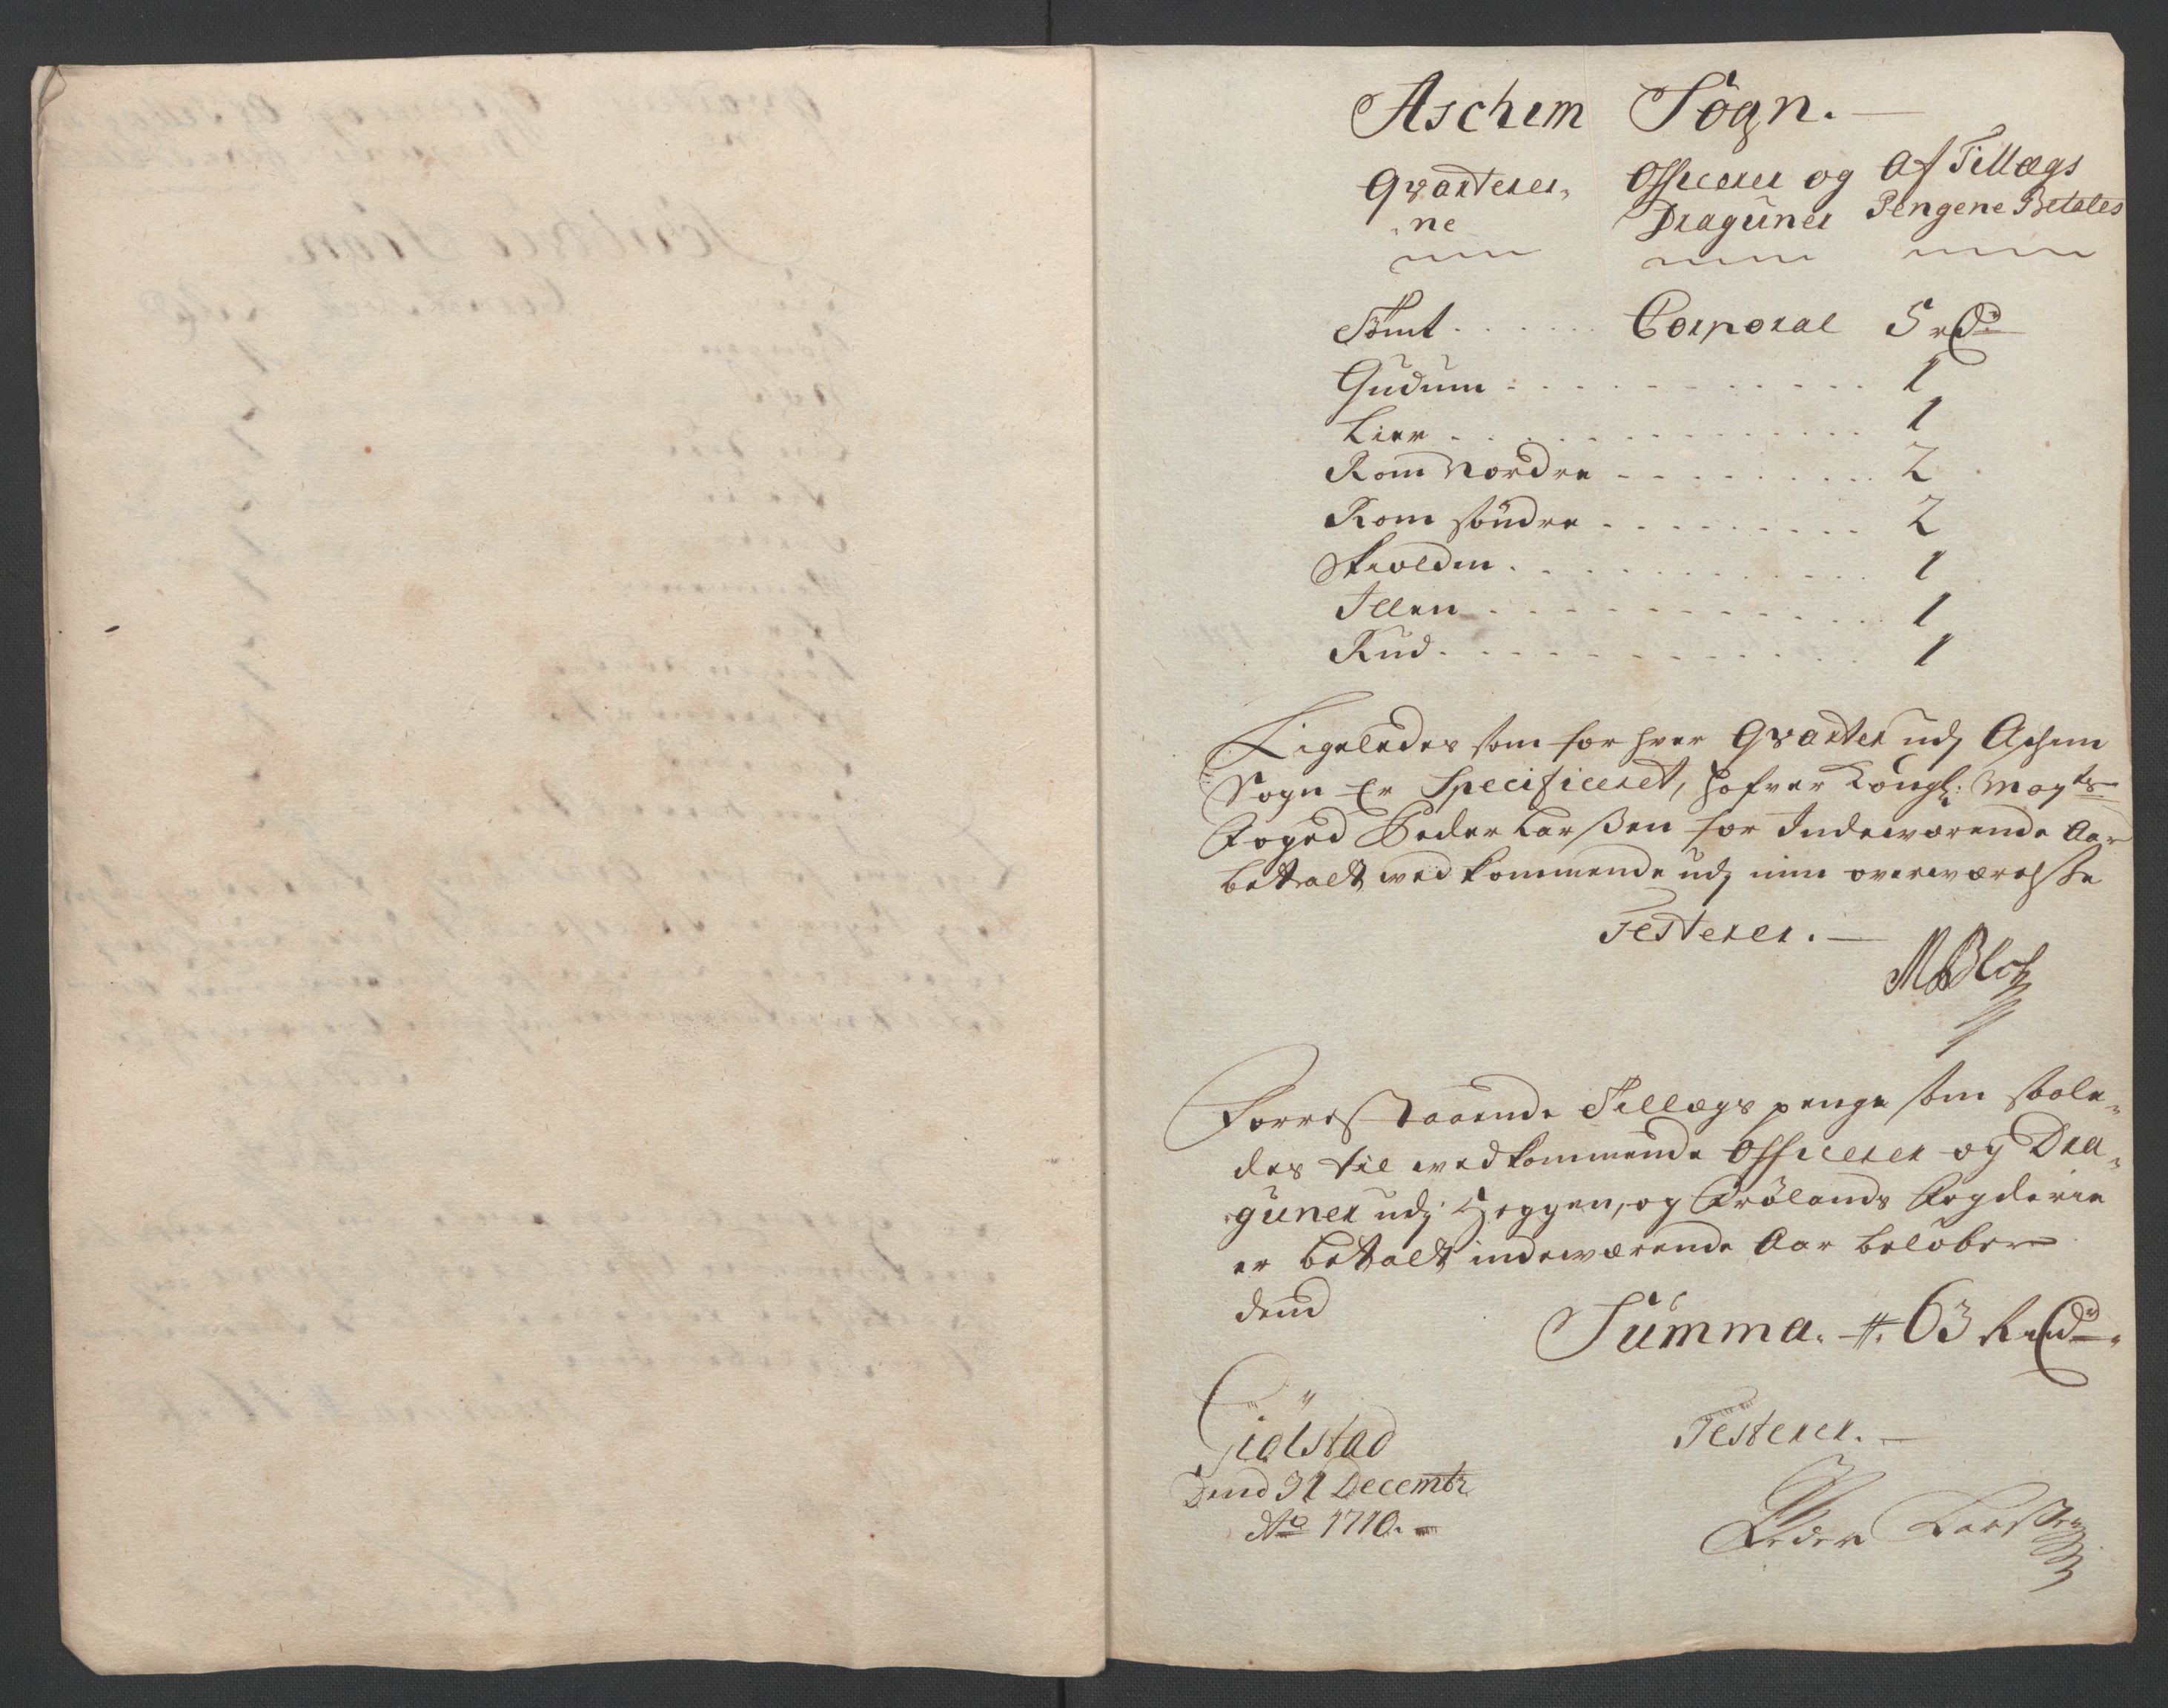 Aschem Sogn.
Qvarterer,, Officerer og Af Tillægs
,,ne Draguner Pengene Betales
Tomt . . . . . . Corporal 5 rd
Gudum . . . . . . . . . . . 1
Lier . . . . . . . . . . . . 1
Rom Nordre . . . . . . . . 2
Rom söndre . . . . . . . . 2
Skiolden . . . . . . . . . . 1
Illen . . . . . . . . . . . 1
Rud . . . . . . . . . . . . 1
Ligeledes som for hver Qvarter udj Aschim
Sogn Er Specificeret, hafver Kongl: Mayts
Foged Peder Larssen for Indewærende Aar
betalt wedkommende udj min overwærelsse
Testerer.
Forrestaaende Tillægs penge som saale,,
des til wedkommende Officerer og Dra,,
guner udj Heggen, og Frölands Fogderie
er betalt indewærende Aar beløber
dend
Summa. #. 63 Rd
Giölstad Testerer.
Dend 31 Decembr
Ao 1710.
Peder Larssen